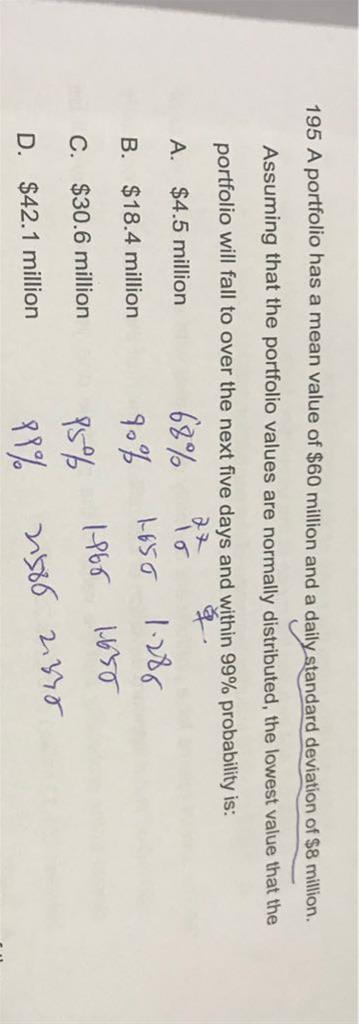 195 A portfolio has a mean value of $60 million and a daily standard deviation of $8 million.
Assuming that the portfolio values are normally distributed, the lowest value that the
portfolio will fall to over the next five days and within 99% probability is:
双 单
A. $4.5 million 68% 1σ
B. $18.4 million 90% 1.65σ 1.28σ
C. $30.6 million 95% 1.96σ 1.65σ
D. $42.1 million 99% 2.58σ 2.33σ